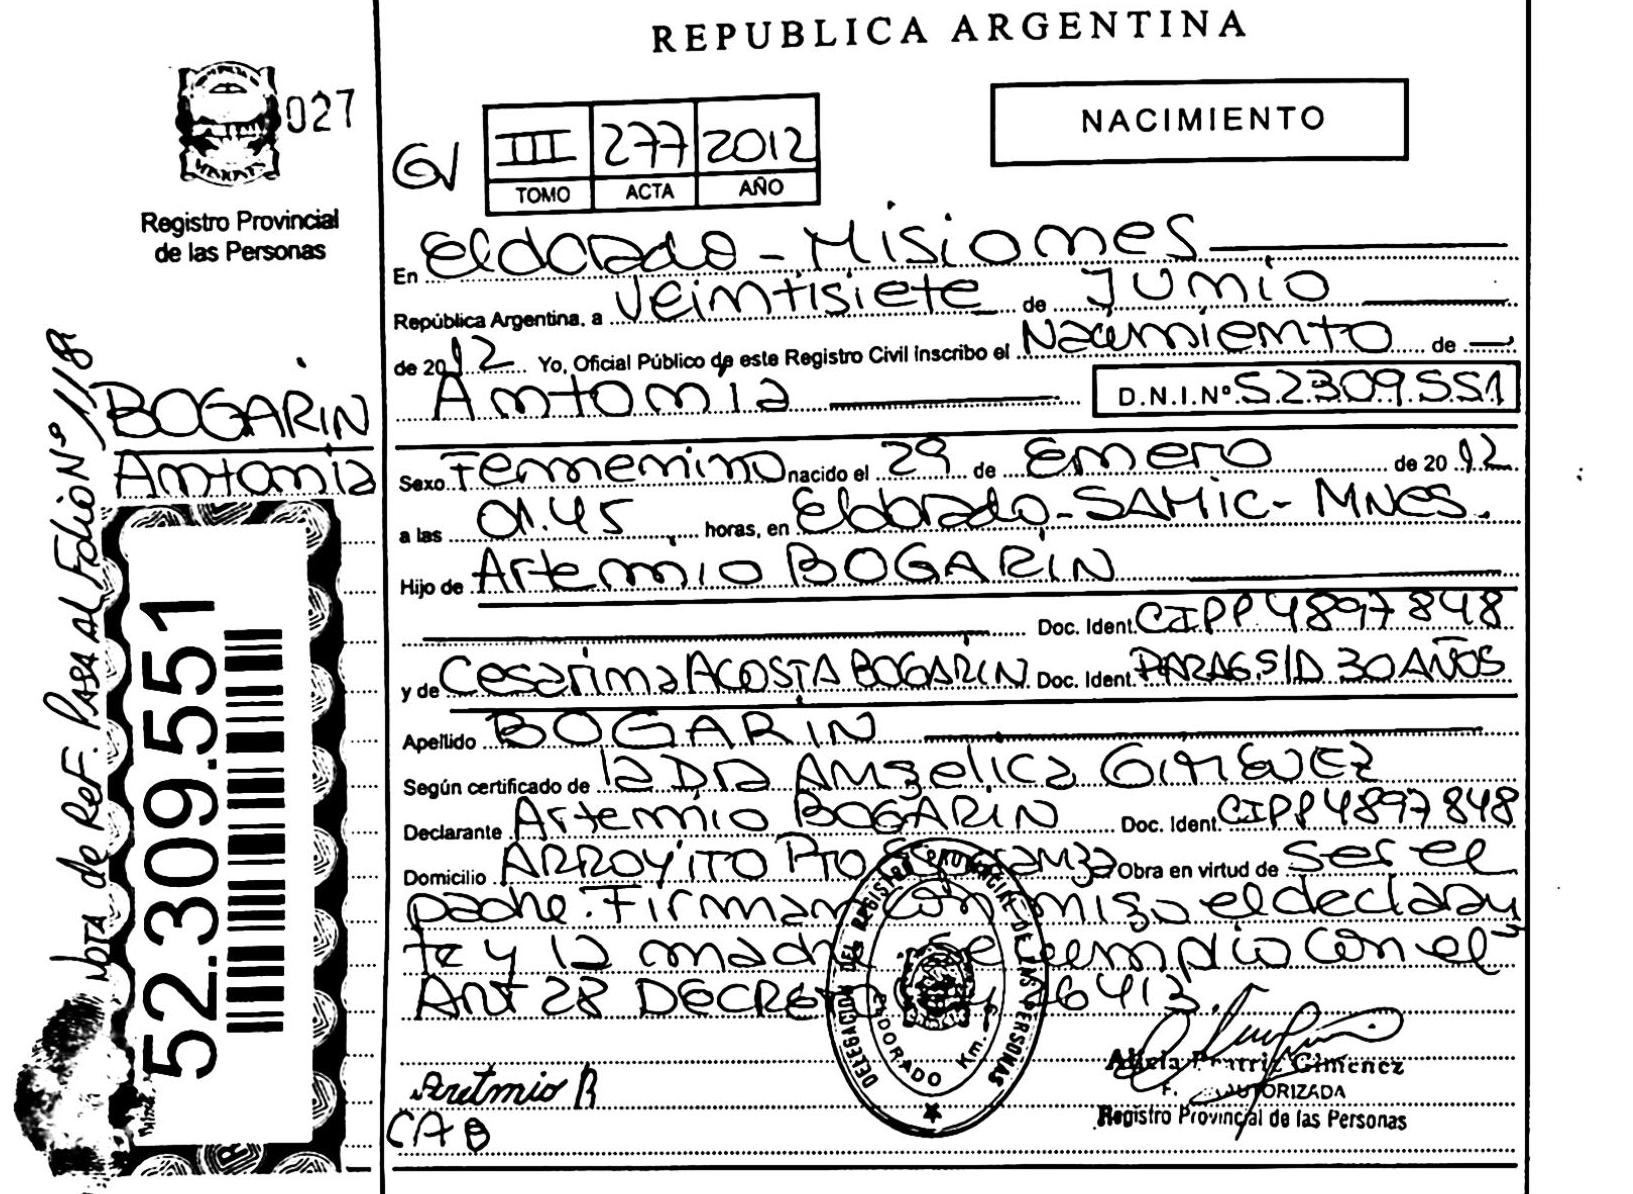 REPUBLICA ARGENTINA
027
Registro Provincial
de las Personas
NACIMIENTO
III 277 2012
TOMO ACTA AÑO
En Eldorado - Misiones
República Argentina, a veintisiete de Junio
de 2012 Yo, Oficial Público de este Registro Civil inscribo el Nacimiento de
Antonia D.N.I.Nº 52309551
Sexo Femenino nacido el 29 de Enero de 2012
a las 01.45 horas, en Eldorado - SAMIC - MNES.
Hijo de Artemio BOGARIN
Doc. Ident. CIPP 4897848
y de Cesarina ACOSTA BOGARIN Doc. Ident. PARAG. S/D 30 AÑOS
Apellido BOGARIN
Según certificado de la DRA Angelica GIMENEZ
Declarante Artemio BOGARIN Doc. Ident. CIPP 4897848
Domicilio ARROYITO Pto Obra en virtud de ser el
padre. Firman conmigo el declaran
te y la madre con el
Art 28 DECRETO 
Artemio B
CAB
Alicia Giménez
AUTORIZADA
Registro Provincial de las Personas
DELEGACION DEL REGISTRO PROVINCIAL DE LAS PERSONAS
ELDORADO Km. 9
BOGARIN
Antonia
Nota de Ref. Pasa al Folio Nº 118
52.309.551